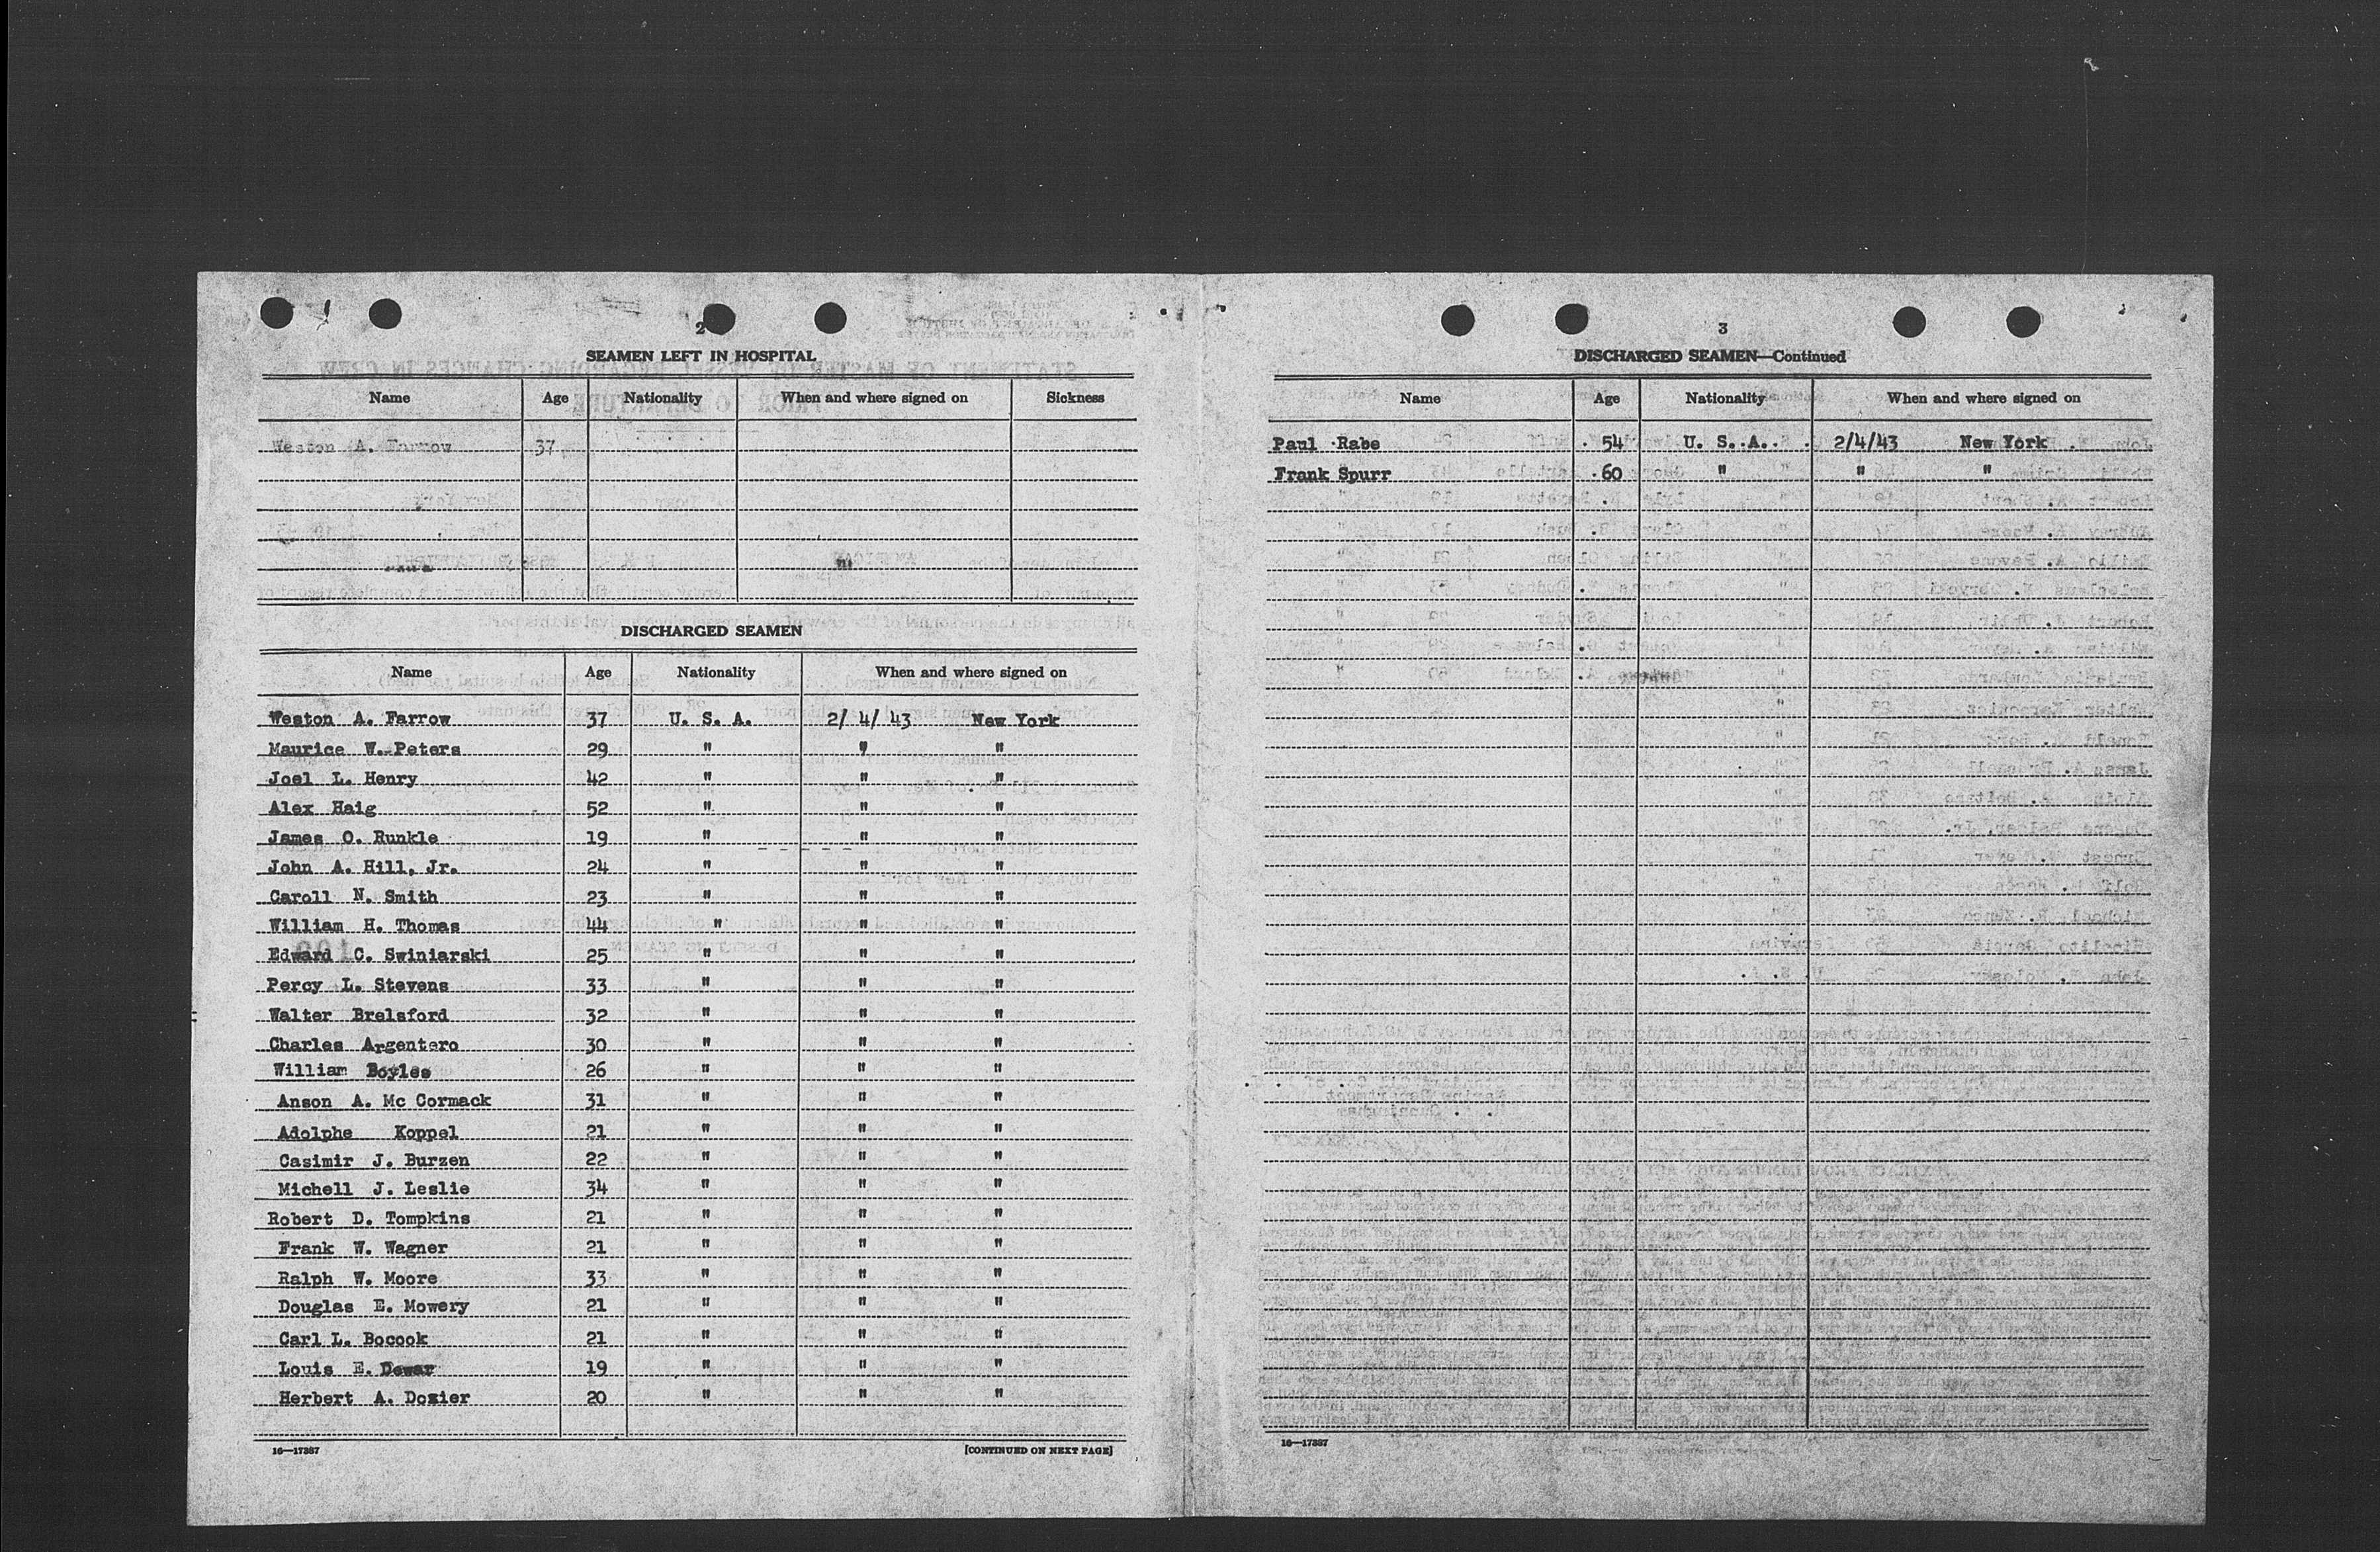 2
SEAMEN LEFT IN HOSPITAL
Name Age Nationality When and where signed on Sickness
Weston A. Farrow 37
DISCHARGED SEAMEN
Name Age Nationality When and where signed on
Weston A. Farrow 37 U. S. A. 2/ 4/ 43 New York
Maurice W. Peters 29 " " "
Joel L. Henry 42 " " "
Alex Haig 52 " " "
James O. Runkle 19 " " "
John A. Hill, Jr. 24 " " "
Caroll N. Smith 23 " " "
William H. Thomas 44 " " "
Edward C. Swiniarski 25 " " "
Percy L. Stevens 33 " " "
Walter Brelsford 32 " " "
Charles Argentero 30 " " "
William Boyles 26 " " "
Anson A. Mc Cormack 31 " " "
Adolphe Koppel 21 " " "
Casimir J. Burzen 22 " " "
Michell J. Leslie 34 " " "
Robert D. Tompkins 21 " " "
Frank W. Wagner 21 " " "
Ralph W. Moore 33 " " "
Douglas E. Mowery 21 " " "
Carl L. Bocook 21 " " "
Louis E. Dewar 19 " " "
Herbert A. Dozier 20 " " "
16—17387 [CONTINUED ON NEXT PAGE]
3
DISCHARGED SEAMEN—Continued
Name Age Nationality When and where signed on
Paul Rabe 54 U. S. A. 2/4/43 New York
Frank Spurr 60 " " "
16—17387